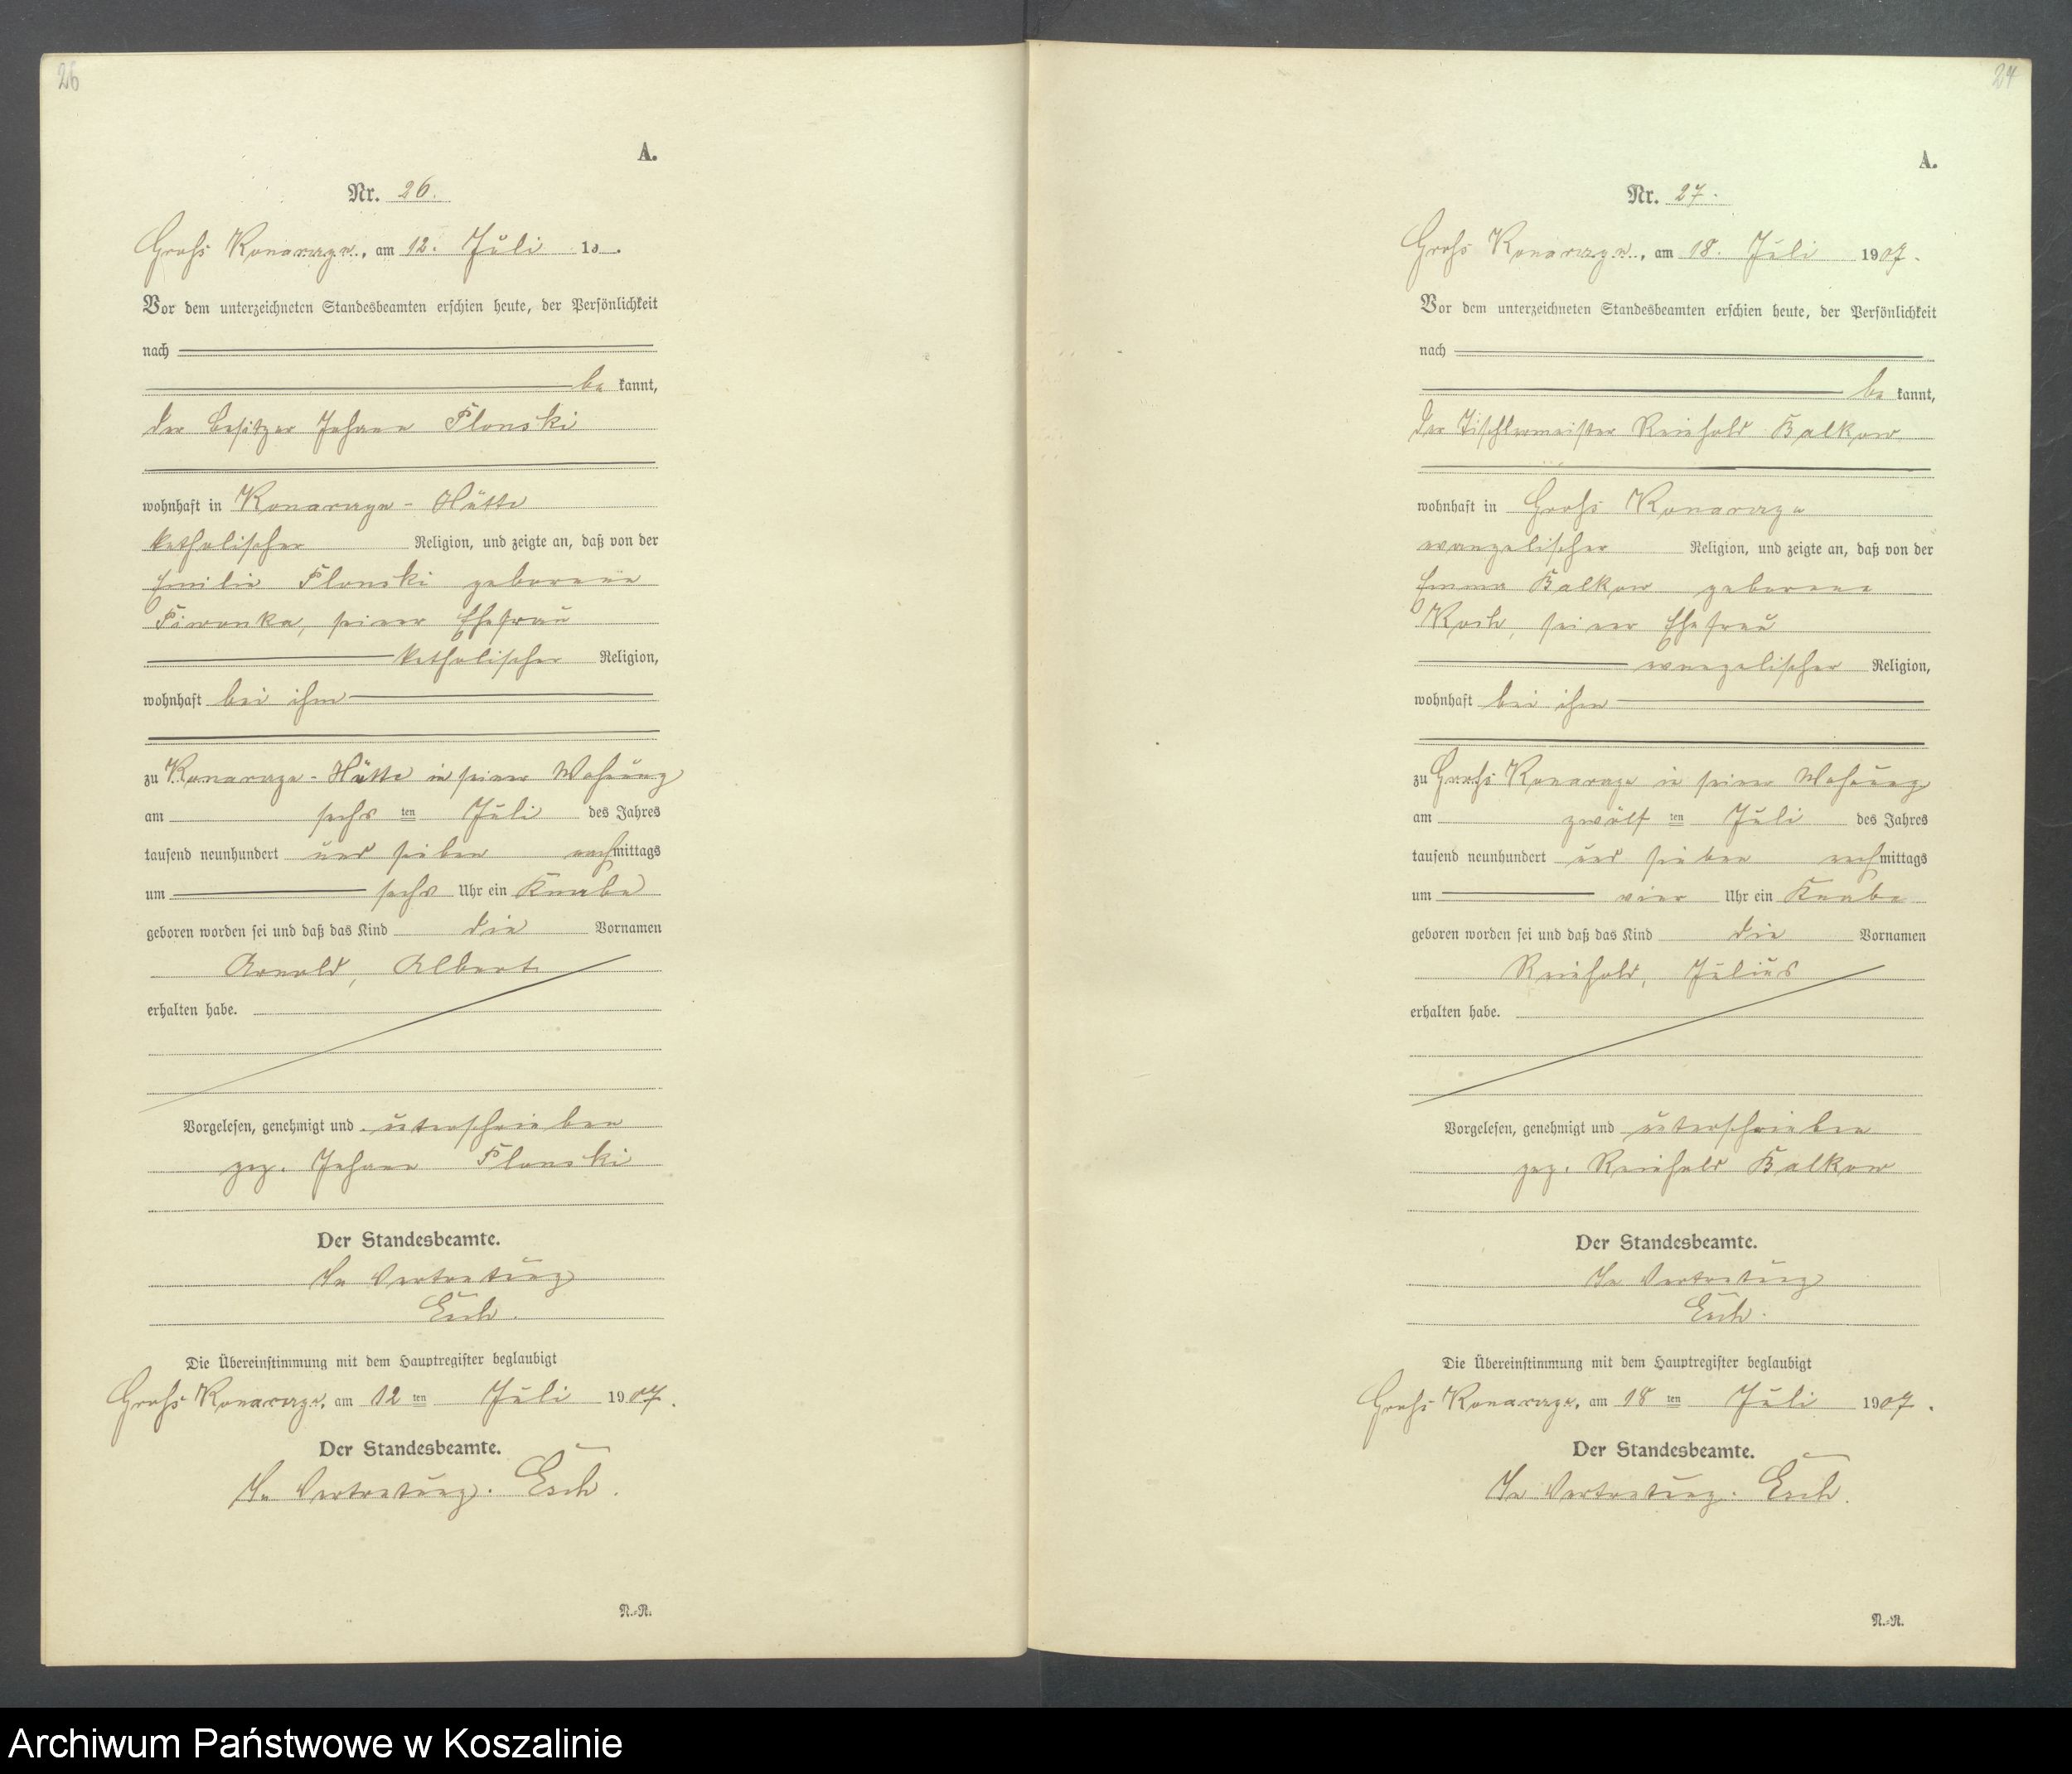 26
A.
Nr. 26.
Groß Konarzyn, am 12. Juli 19 .
Vor dem unterzeichneten Standesbeamten erschien heute, der Persönlichkeit
nach
be kannt,
der Besitzer Johann Plonski
wohnhaft in Konarzyn - Hütte
katholischer Religion, und zeigte an, daß von der
Emilie Plonski geborene
Piwonka, seiner Ehefrau
katholischer Religion,
wohnhaft bei ihm
zu Konarzyn - Hütte in seiner Wohnung
am sechs ten Juli des Jahres
tausend neunhundert und sieben nachmittags
um sechs Uhr ein Knabe
geboren worden sei und daß das Kind die Vornamen
Arnold, Albert
erhalten habe.
Vorgelesen, genehmigt und unterschrieben
gez. Johann Plonski
Der Standesbeamte.
In Vertretung
Esch.
Die Übereinstimmung mit dem Hauptregister beglaubigt
Groß Konarzyn, am 12 ten Juli 1907.
Der Standesbeamte.
In Vertretung. Esch.
N.-R.
27
A.
Nr. 27.
Groß Konarzyn, am 18. Juli 1907.
Vor dem unterzeichneten Standesbeamten erschien heute, der Persönlichkeit
nach
be kannt,
der Tischlermeister Reinhold Balkow
wohnhaft in Groß Konarzyn
evangelischer Religion, und zeigte an, daß von der
Emma Balkow geborene
Koch, seiner Ehefrau
evangelischer Religion,
wohnhaft bei ihm
zu Groß Konarzyn in seiner Wohnung
am zwölf ten Juli des Jahres
tausend neunhundert und sieben nachmittags
um vier Uhr ein Knabe
geboren worden sei und daß das Kind die Vornamen
Reinhold, Julius
erhalten habe.
Vorgelesen, genehmigt und unterschrieben
gez. Reinhold Balkow
Der Standesbeamte.
In Vertretung
Esch.
Die Übereinstimmung mit dem Hauptregister beglaubigt
Groß Konarzyn, am 18 ten Juli 1907.
Der Standesbeamte.
In Vertretung. Esch.
N.-R.
Archiwum Państwowe w Koszalinie